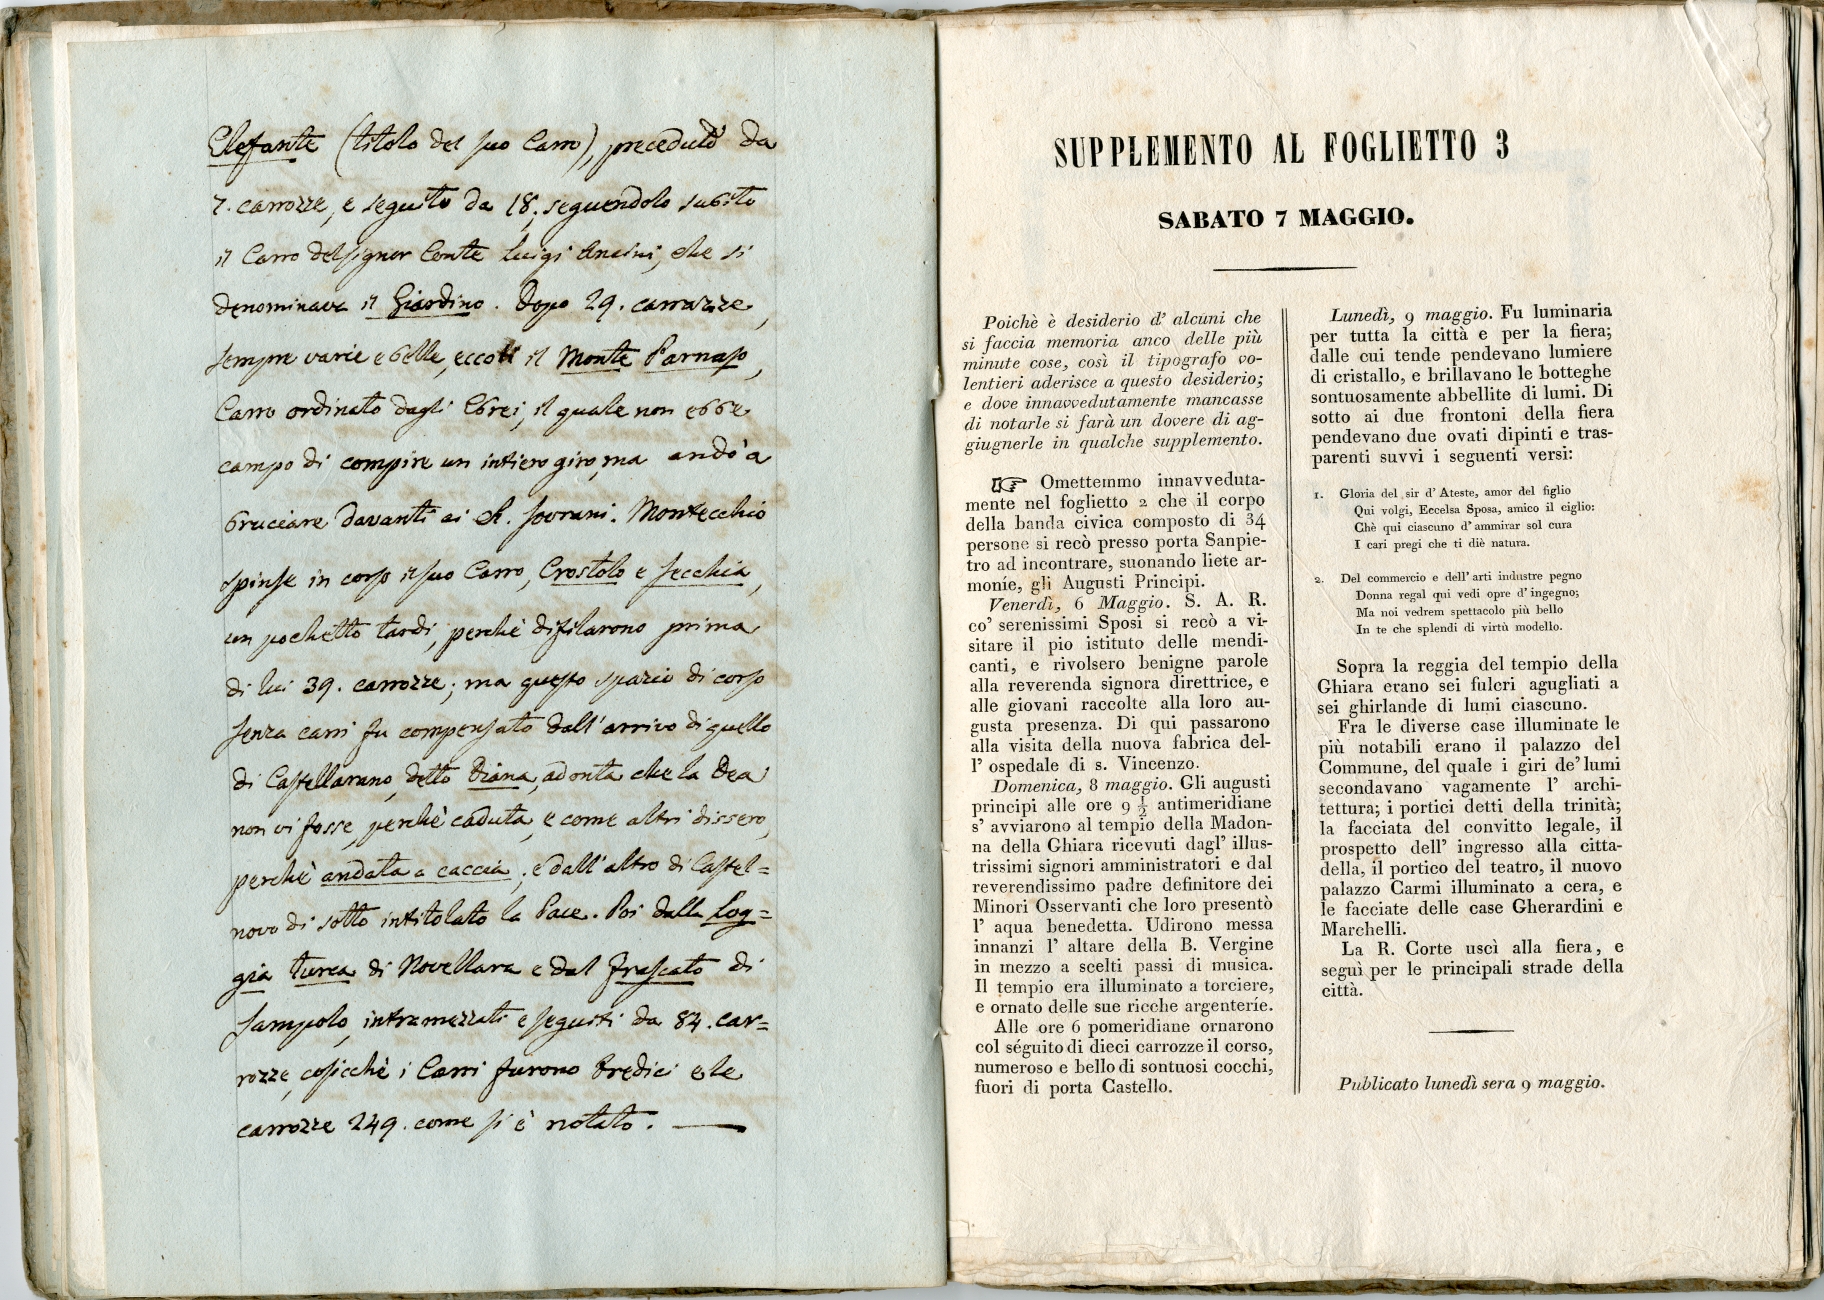 Elefante (titolo del suo Carro), preceduto da
7. carrozze, e seguito da 18; seguendolo subito
il Carro del signor Conte Luigi Ancini, che si
denominava il Giardino. Dopo 29. carrozze,
sempre varie e belle, eccoti il Monte Parnaso,
Carro ordinato dagli Ebrei, il quale non ebbe
campo di compire un intiero giro, ma andò a
bruciare davanti ai R. Sovrani. Montecchio
spinse in corso il suo Carro, Crostolo e Secchia,
un pochetto tardi, perchè difilarono prima
di lui 39. carrozze; ma questo spazio di corso
senza carri fu compensato dall'arrivo di quello
di Castellarano, detto Diana, ad onta che la Dea
non vi fosse, perchè caduta, e come altri dissero,
perchè andata a caccia; e dall'altro di Castel=
novo di sotto intitolato la Pace. Poi dalla Log=
gia turca di Novellara e dal frascato di
Sampolo, intramezzati e seguiti da 84. car=
rozze, cosicchè i Carri furono tredici e le
carrozze 249. come si è notato.
SUPPLEMENTO AL FOGLIETTO 3
SABATO 7 MAGGIO.
Poichè è desiderio d' alcuni che
si faccia memoria anco delle più
minute cose, così il tipografo vo-
lentieri aderisce a questo desiderio;
e dove innavvedutamente mancasse
di notarle si farà un dovere di ag-
giugnerle in qualche supplemento.
☞ Omettemmo innavveduta-
mente nel foglietto 2 che il corpo
della banda civica composto di 34
persone si recò presso porta Sanpie-
tro ad incontrare, suonando liete ar-
moníe, gli Augusti Principi.
Venerdì, 6 Maggio. S. A. R.
co' serenissimi Sposi si recò a vi-
sitare il pio istituto delle mendi-
canti, e rivolsero benigne parole
alla reverenda signora direttrice, e
alle giovani raccolte alla loro au-
gusta presenza. Di qui passarono
alla visita della nuova fabrica del-
l' ospedale di s. Vincenzo.
Domenica, 8 maggio. Gli augusti
principi alle ore 9 ½ antimeridiane
s' avviarono al tempio della Madon-
na della Ghiara ricevuti dagl' illus-
trissimi signori amministratori e dal
reverendissimo padre definitore dei
Minori Osservanti che loro presentò
l' aqua benedetta. Udirono messa
innanzi l' altare della B. Vergine
in mezzo a scelti passi di musica.
Il tempio era illuminato a torciere,
e ornato delle sue ricche argenteríe.
Alle ore 6 pomeridiane ornarono
col séguito di dieci carrozze il corso,
numeroso e bello di sontuosi cocchi,
fuori di porta Castello.
Lunedì, 9 maggio. Fu luminaria
per tutta la città e per la fiera;
dalle cui tende pendevano lumiere
di cristallo, e brillavano le botteghe
sontuosamente abbellite di lumi. Di
sotto ai due frontoni della fiera
pendevano due ovati dipinti e tras-
parenti suvvi i seguenti versi:
1. Gloria del sir d' Ateste, amor del figlio
Qui volgi, Eccelsa Sposa, amico il ciglio:
Chè qui ciascuno d' ammirar sol cura
I cari pregi che ti diè natura.
2. Del commercio e dell' arti industre pegno
Donna regal qui vedi opre d' ingegno;
Ma noi vedrem spettacolo più bello
In te che splendi di virtù modello.
Sopra la reggia del tempio della
Ghiara erano sei fulcri agugliati a
sei ghirlande di lumi ciascuno.
Fra le diverse case illuminate le
più notabili erano il palazzo del
Commune, del quale i giri de' lumi
secondavano vagamente l' archi-
tettura; i portici detti della trinità;
la facciata del convitto legale, il
prospetto dell' ingresso alla citta-
della, il portico del teatro, il nuovo
palazzo Carmi illuminato a cera, e
le facciate delle case Gherardini e
Marchelli.
La R. Corte uscì alla fiera, e
seguì per le principali strade della
città.
Publicato lunedì sera 9 maggio.